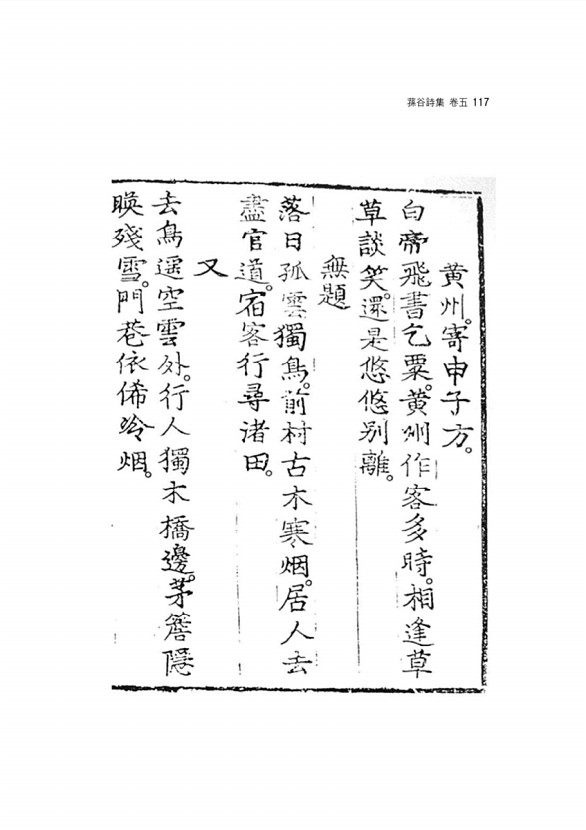 蓀谷詩集 卷五 117
黃州。寄申子方。
白帝飛書乞粟。黃州作客多時。相逢草
草談笑。還是悠悠别離。
無題
落日孤雲獨鳥。前村古木寒烟。居人去
盡官道。宿客行尋渚田。
又
去鳥遥空雲外。行人獨木橋邊。茅簷隱
暎殘雪。門巷依俙冷烟。